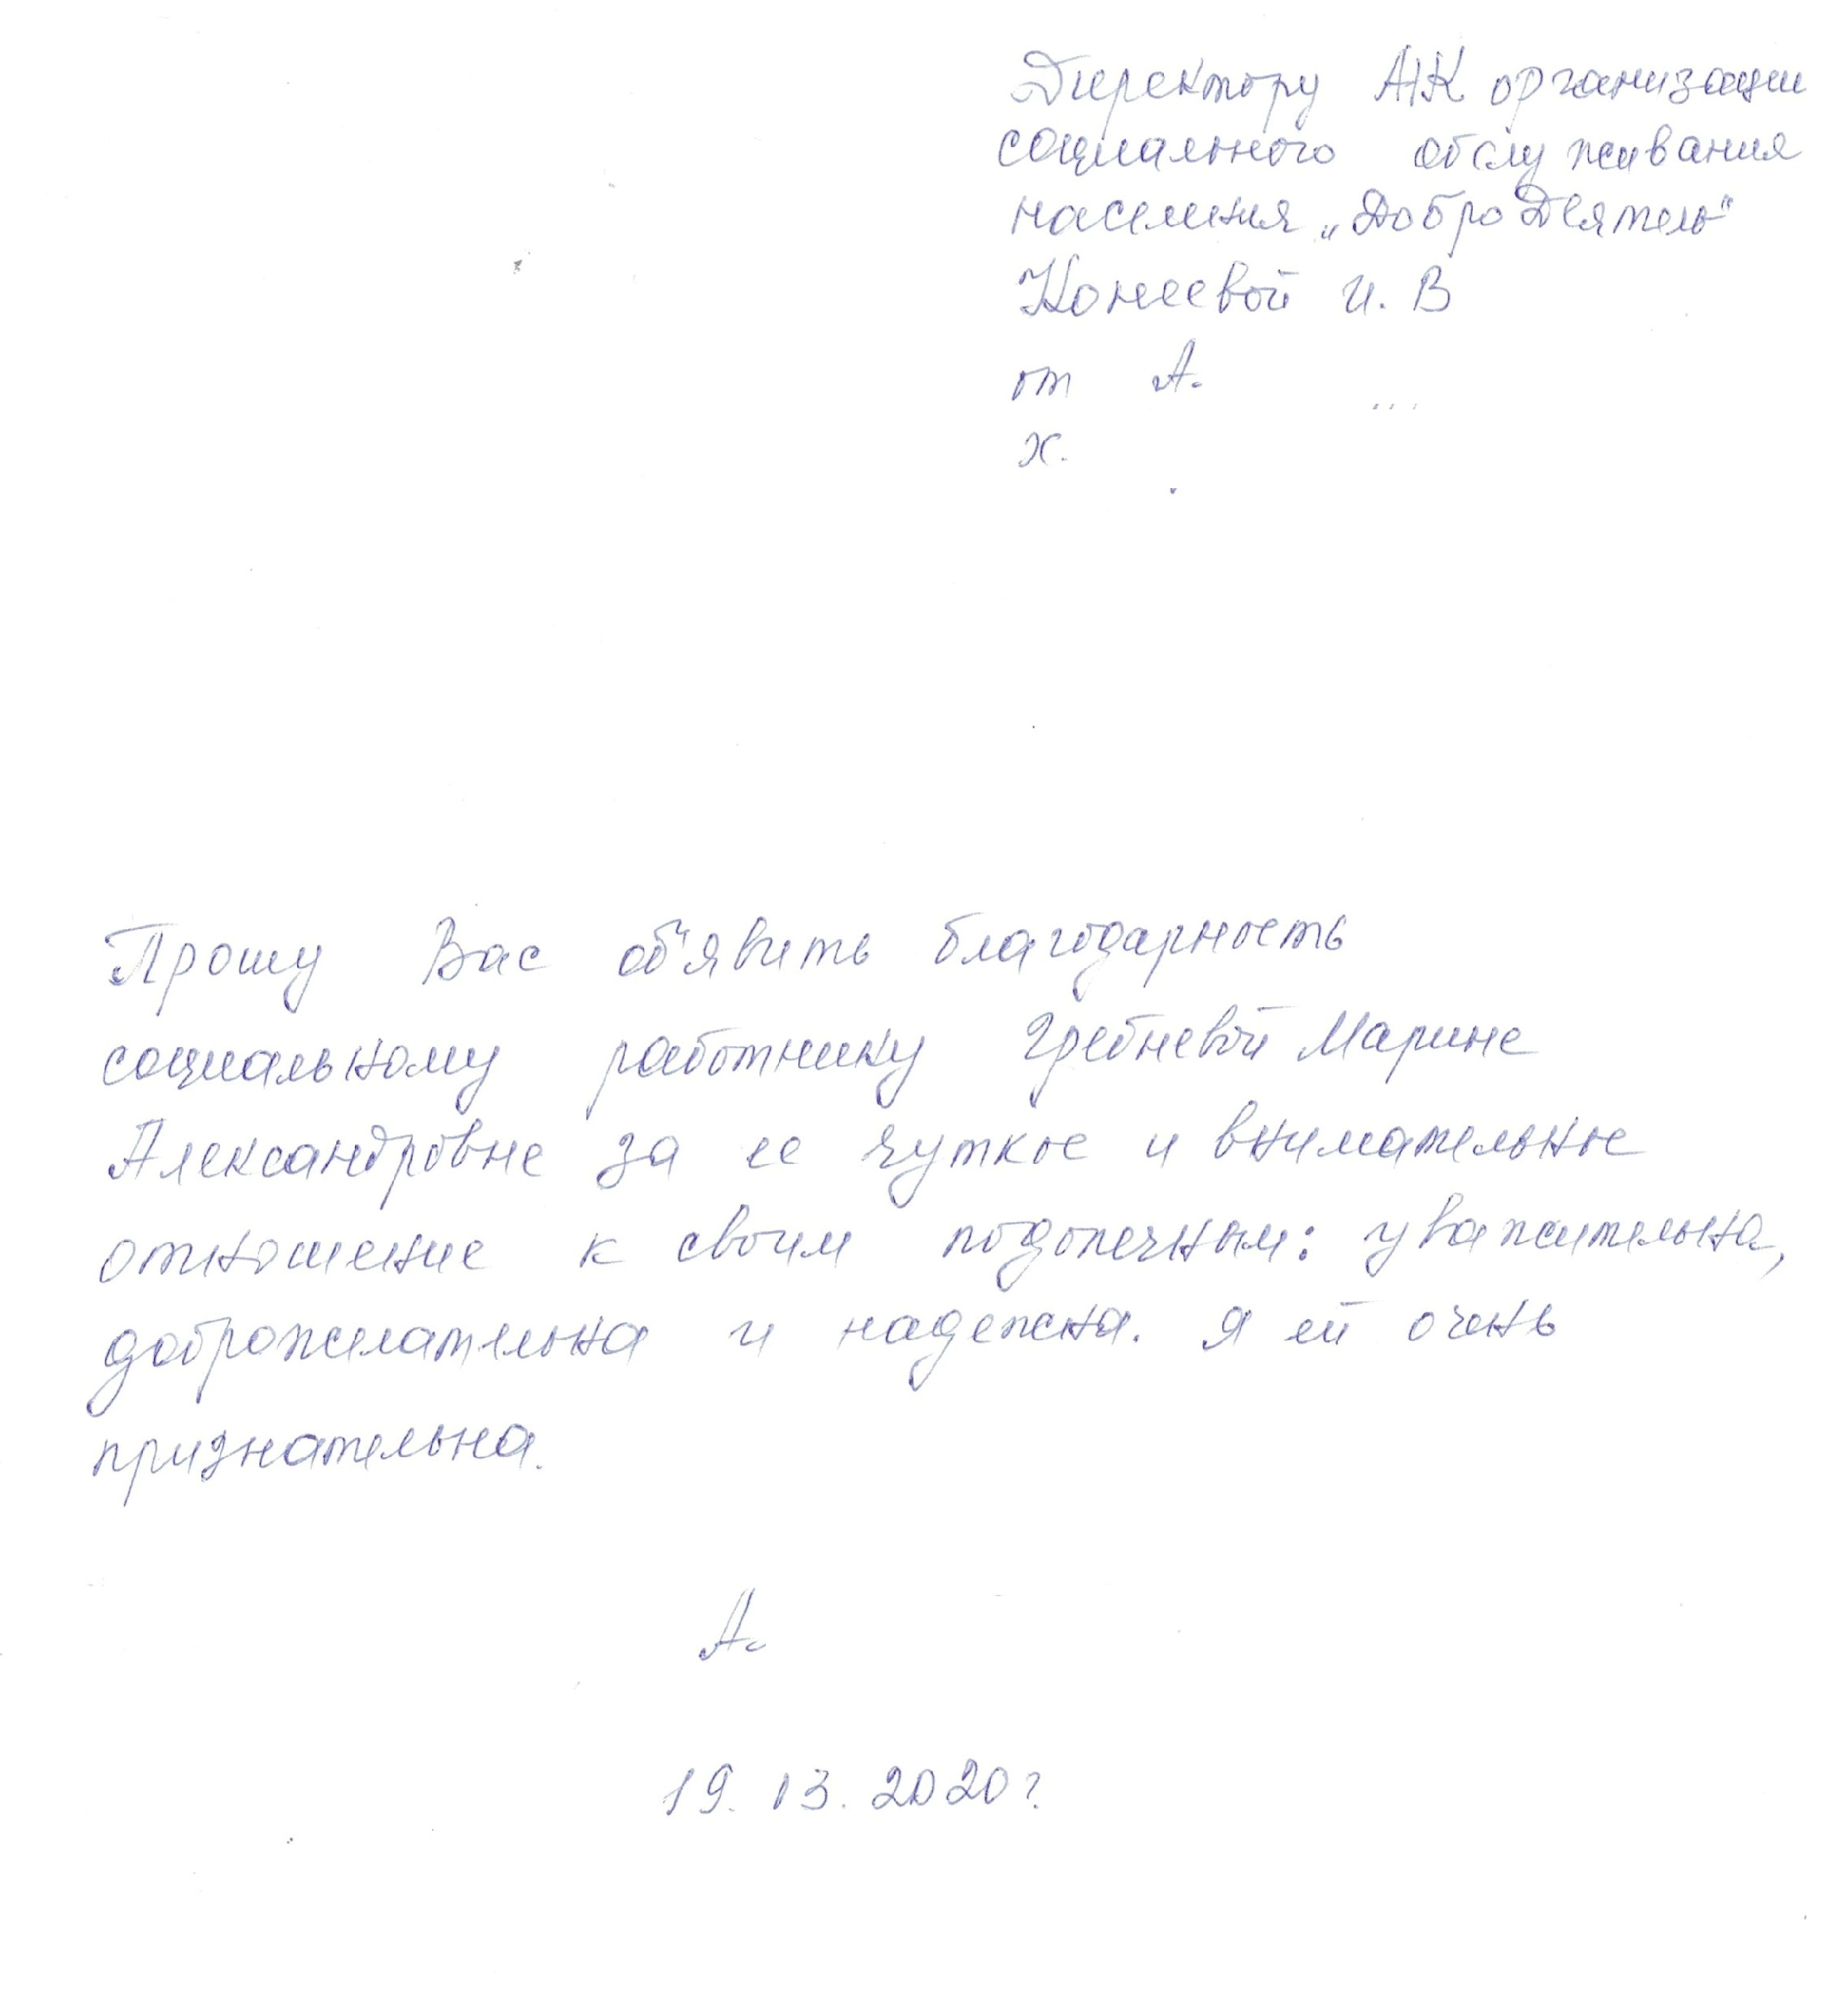 Директору АНК организации
социального обслуживания
населения „ДоброДеятель"
Конеевой И. В
от А.
Х.
Прошу Вас об"явить благодарность
социальному работнику Гребневой Марине
Александровне за ее чуткое и внимательное
отношение к своим подопечным: уважительна,
доброжелательна и надежна. Я ей очень
признательна.
А.
19. 03. 2020г